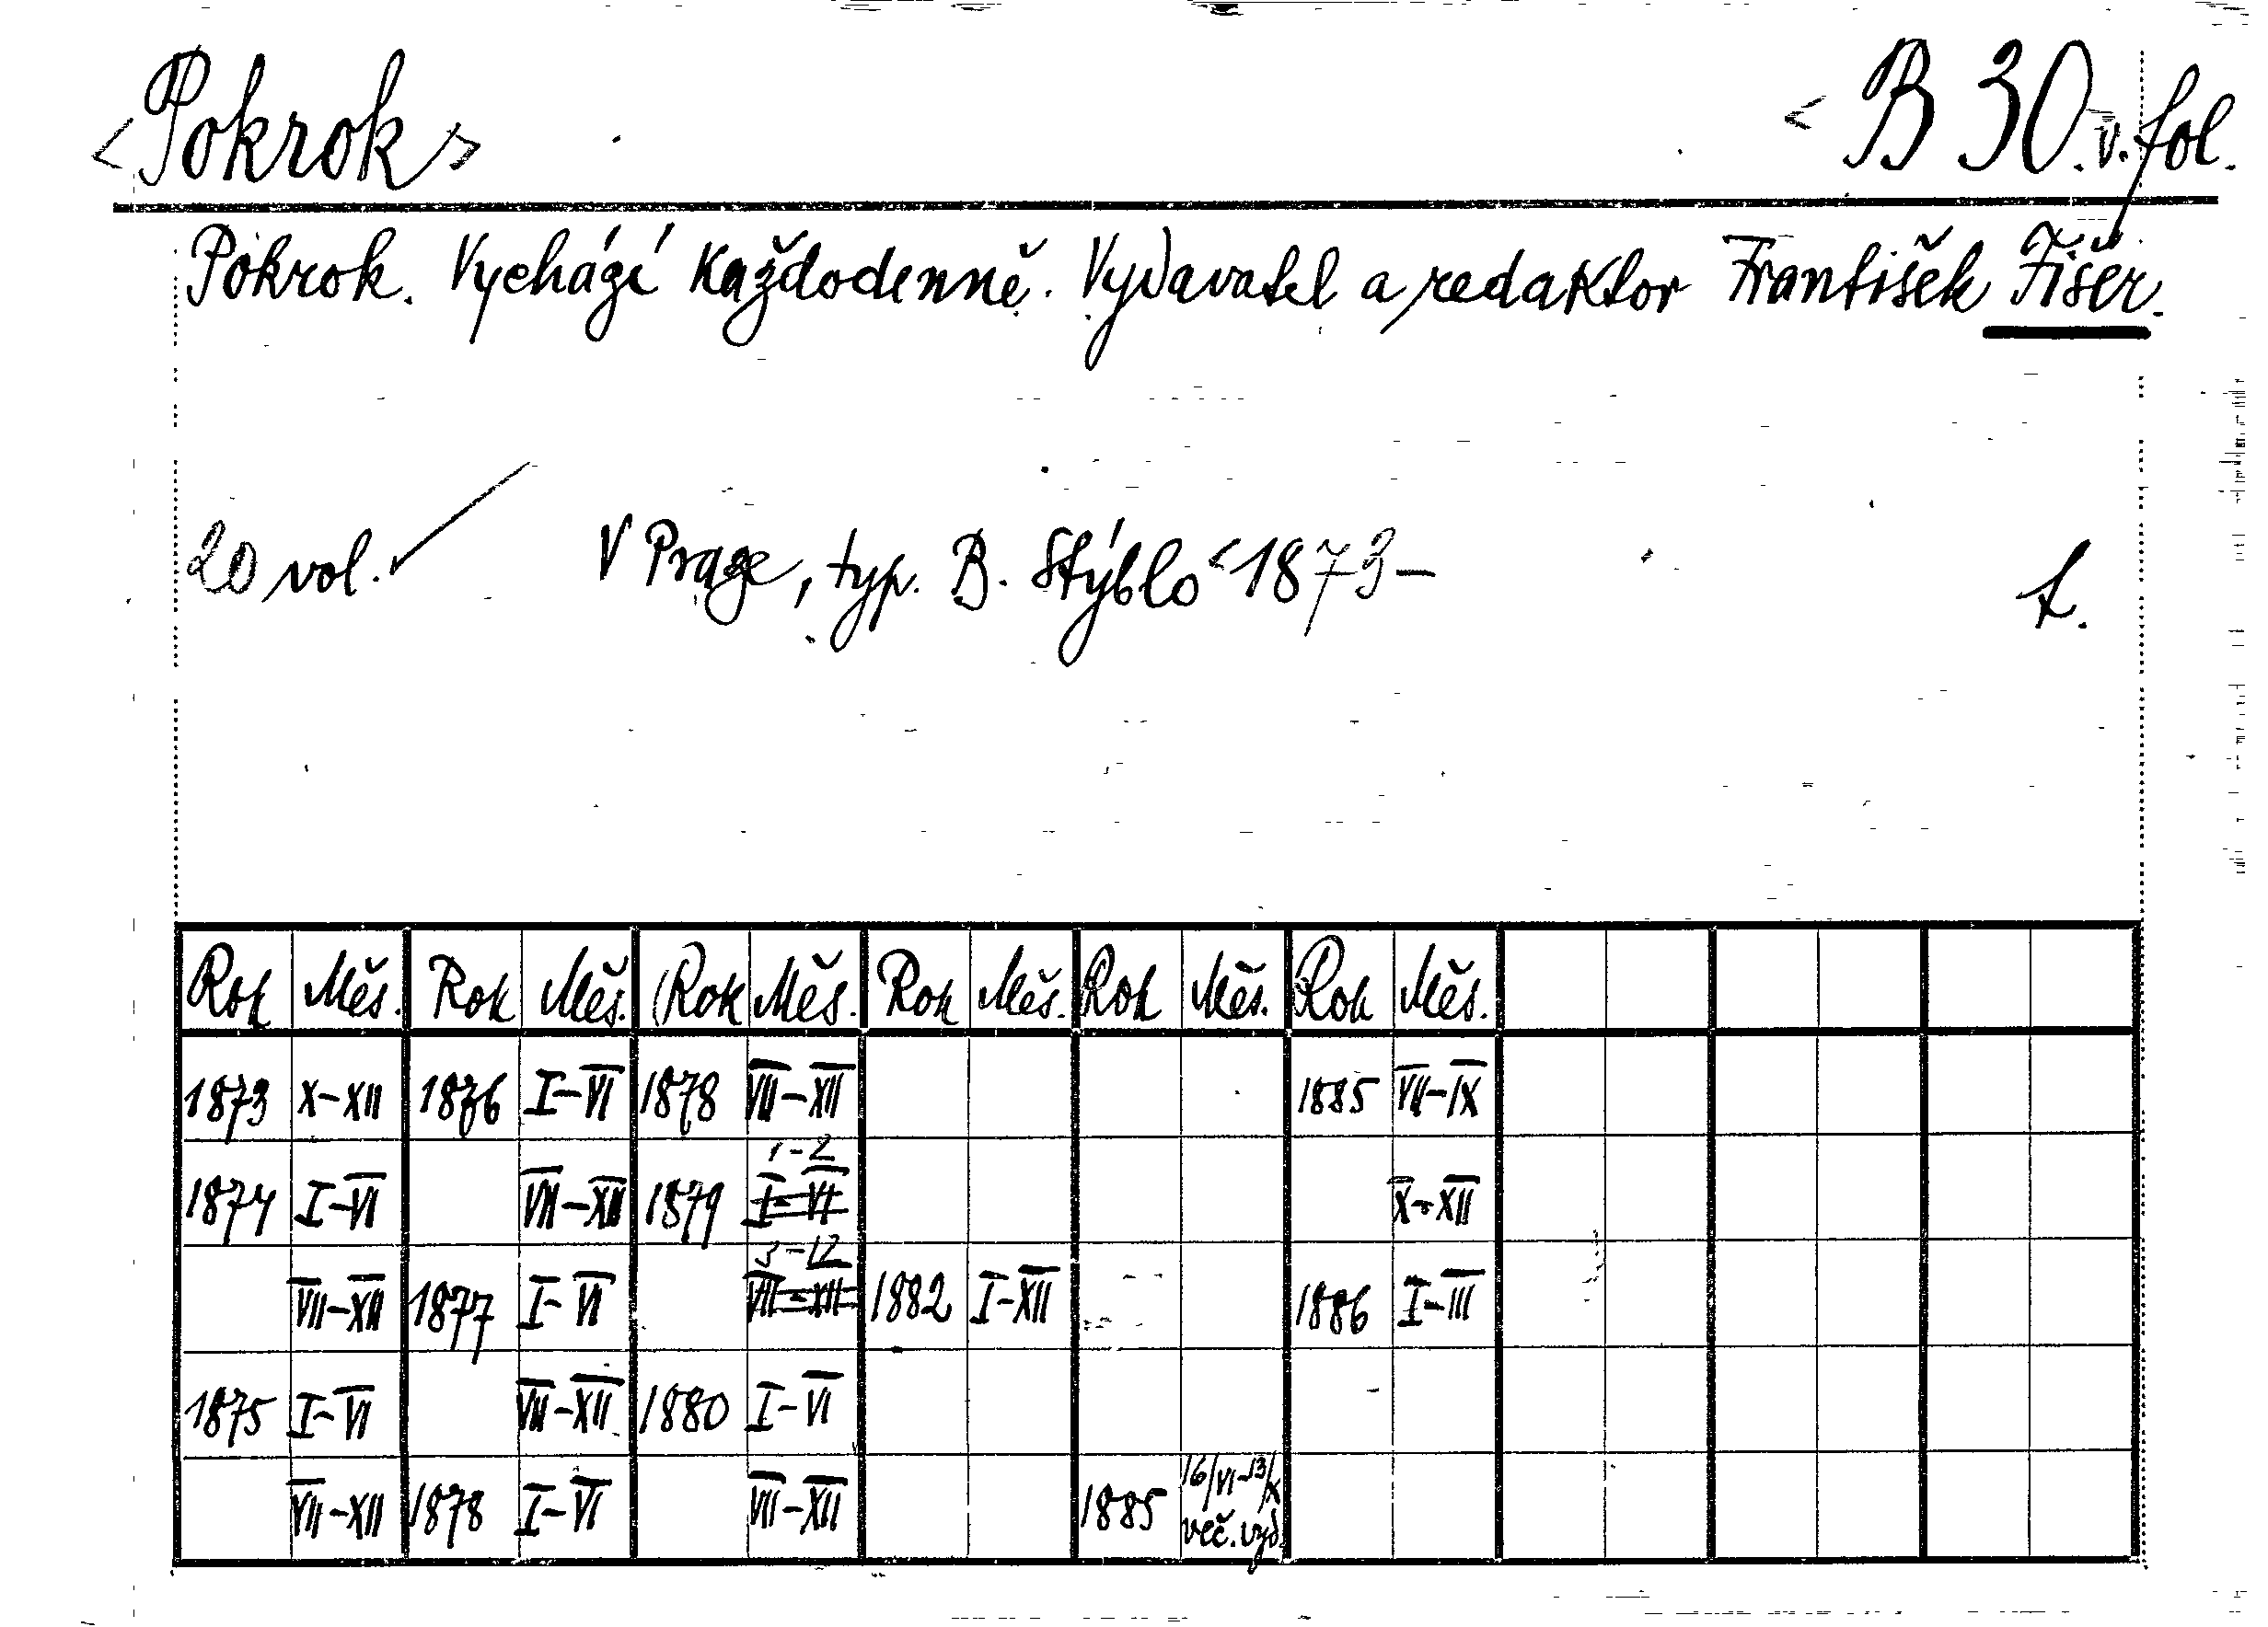 <Pokrok> <B 30. v. fol.
Pokrok. Vychází každodenně. Vydavatel a redaktor František Fišer.
20 vol. V Praze, typ. B. Stýblo <1873– f.
Rok Měs. Rok Měs. Rok Měs. Rok Měs. Rok Měs. Rok Měs.
1873 X–XII 1876 I–VI 1878 VII–XII 1885 VII–IX
1–2
1874 I–VI VII–XII 1879 I–VI X–XII
3–12
VII–XII 1877 I–VI VII–XII 1882 I–XII 1886 I–III
1875 I–VI VII–XII 1880 I–VI
16/VI–13/X
VII–XII 1878 I–VI VII–XII 1885 več. vyd.